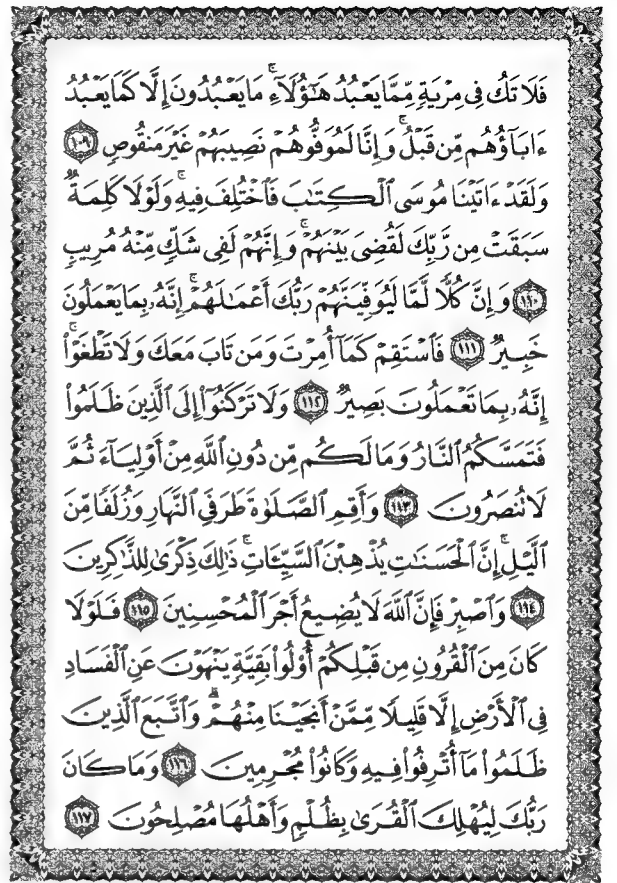 فَلَا تَكُ فِى مِرْيَةٍ مِّمَّا يَعْبُدُ هَـٰٓؤُلَآءِ ۚ مَا يَعْبُدُونَ إِلَّا كَمَا يَعْبُدُ
ءَابَآؤُهُم مِّن قَبْلُ ۚ وَإِنَّا لَمُوَفُّوهُمْ نَصِيبَهُمْ غَيْرَ مَنقُوصٍ ١٠٩
وَلَقَدْ ءَاتَيْنَا مُوسَى ٱلْكِتَـٰبَ فَٱخْتُلِفَ فِيهِ ۚ وَلَوْلَا كَلِمَةٌ
سَبَقَتْ مِن رَّبِّكَ لَقُضِىَ بَيْنَهُمْ ۚ وَإِنَّهُمْ لَفِى شَكٍّ مِّنْهُ مُرِيبٍ
١١٠ وَإِنَّ كُلًّا لَّمَّا لَيُوَفِّيَنَّهُمْ رَبُّكَ أَعْمَـٰلَهُمْ ۚ إِنَّهُۥ بِمَا يَعْمَلُونَ
خَبِيرٌ ١١١ فَٱسْتَقِمْ كَمَآ أُمِرْتَ وَمَن تَابَ مَعَكَ وَلَا تَطْغَوْا۟ ۚ
إِنَّهُۥ بِمَا تَعْمَلُونَ بَصِيرٌ ١١٢ وَلَا تَرْكَنُوٓا۟ إِلَى ٱلَّذِينَ ظَلَمُوا۟
فَتَمَسَّكُمُ ٱلنَّارُ وَمَا لَكُم مِّن دُونِ ٱللَّهِ مِنْ أَوْلِيَآءَ ثُمَّ
لَا تُنصَرُونَ ١١٣ وَأَقِمِ ٱلصَّلَوٰةَ طَرَفَىِ ٱلنَّهَارِ وَزُلَفًا مِّنَ
ٱلَّيْلِ ۚ إِنَّ ٱلْحَسَنَـٰتِ يُذْهِبْنَ ٱلسَّيِّـَٔاتِ ۚ ذَٰلِكَ ذِكْرَىٰ لِلذَّٰكِرِينَ
١١٤ وَٱصْبِرْ فَإِنَّ ٱللَّهَ لَا يُضِيعُ أَجْرَ ٱلْمُحْسِنِينَ ١١٥ فَلَوْلَا
كَانَ مِنَ ٱلْقُرُونِ مِن قَبْلِكُمْ أُو۟لُوا۟ بَقِيَّةٍ يَنْهَوْنَ عَنِ ٱلْفَسَادِ
فِى ٱلْأَرْضِ إِلَّا قَلِيلًا مِّمَّنْ أَنجَيْنَا مِنْهُمْ ۗ وَٱتَّبَعَ ٱلَّذِينَ
ظَلَمُوا۟ مَآ أُتْرِفُوا۟ فِيهِ وَكَانُوا۟ مُجْرِمِينَ ١١٦ وَمَا كَانَ
رَبُّكَ لِيُهْلِكَ ٱلْقُرَىٰ بِظُلْمٍ وَأَهْلُهَا مُصْلِحُونَ ١١٧